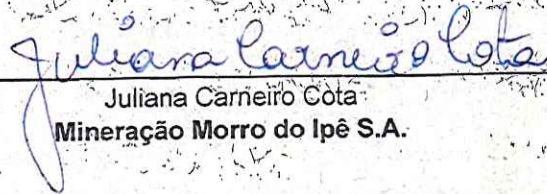 Juliana Carneiro Cota
Juliana Carneiro Cota
Mineração Morro do Ipê S.A.